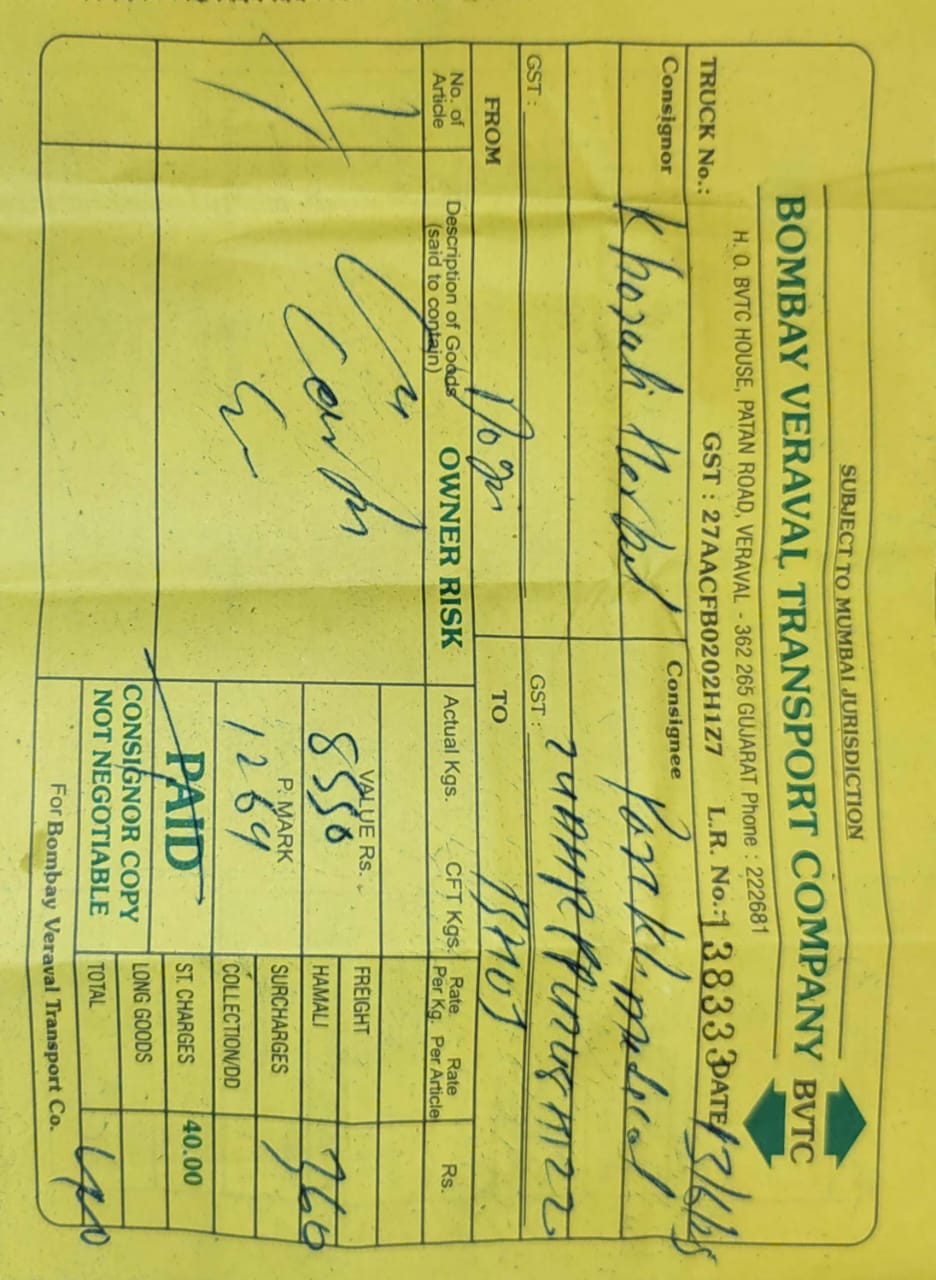 SUBJECT TO MUMBAI JURISDICTION
BOMBAY VERAVAL TRANSPORT COMPANY BVTC
H. O. BVTC HOUSE, PATAN ROAD, VERAVAL - 362 265 GUJARAT Phone : 222681
TRUCK No.: GST : 27AACFB0202H1Z7 L.R. No.: 138333 DATE
Consignor Khorali Herbal Consignee medical
GST : GST :
FROM TO
No. of Article Description of Goods (said to contain) OWNER RISK Actual Kgs. CFT Kgs. Rate Per Kg. Rate Per Article Rs.
VALUE Rs. 8550 FREIGHT
HAMALI 360
P. MARK 1269 SURCHARGES
COLLECTION/DD
PAID ST. CHARGES 40.00
CONSIGNOR COPY LONG GOODS
NOT NEGOTIABLE TOTAL
For Bombay Veraval Transport Co.